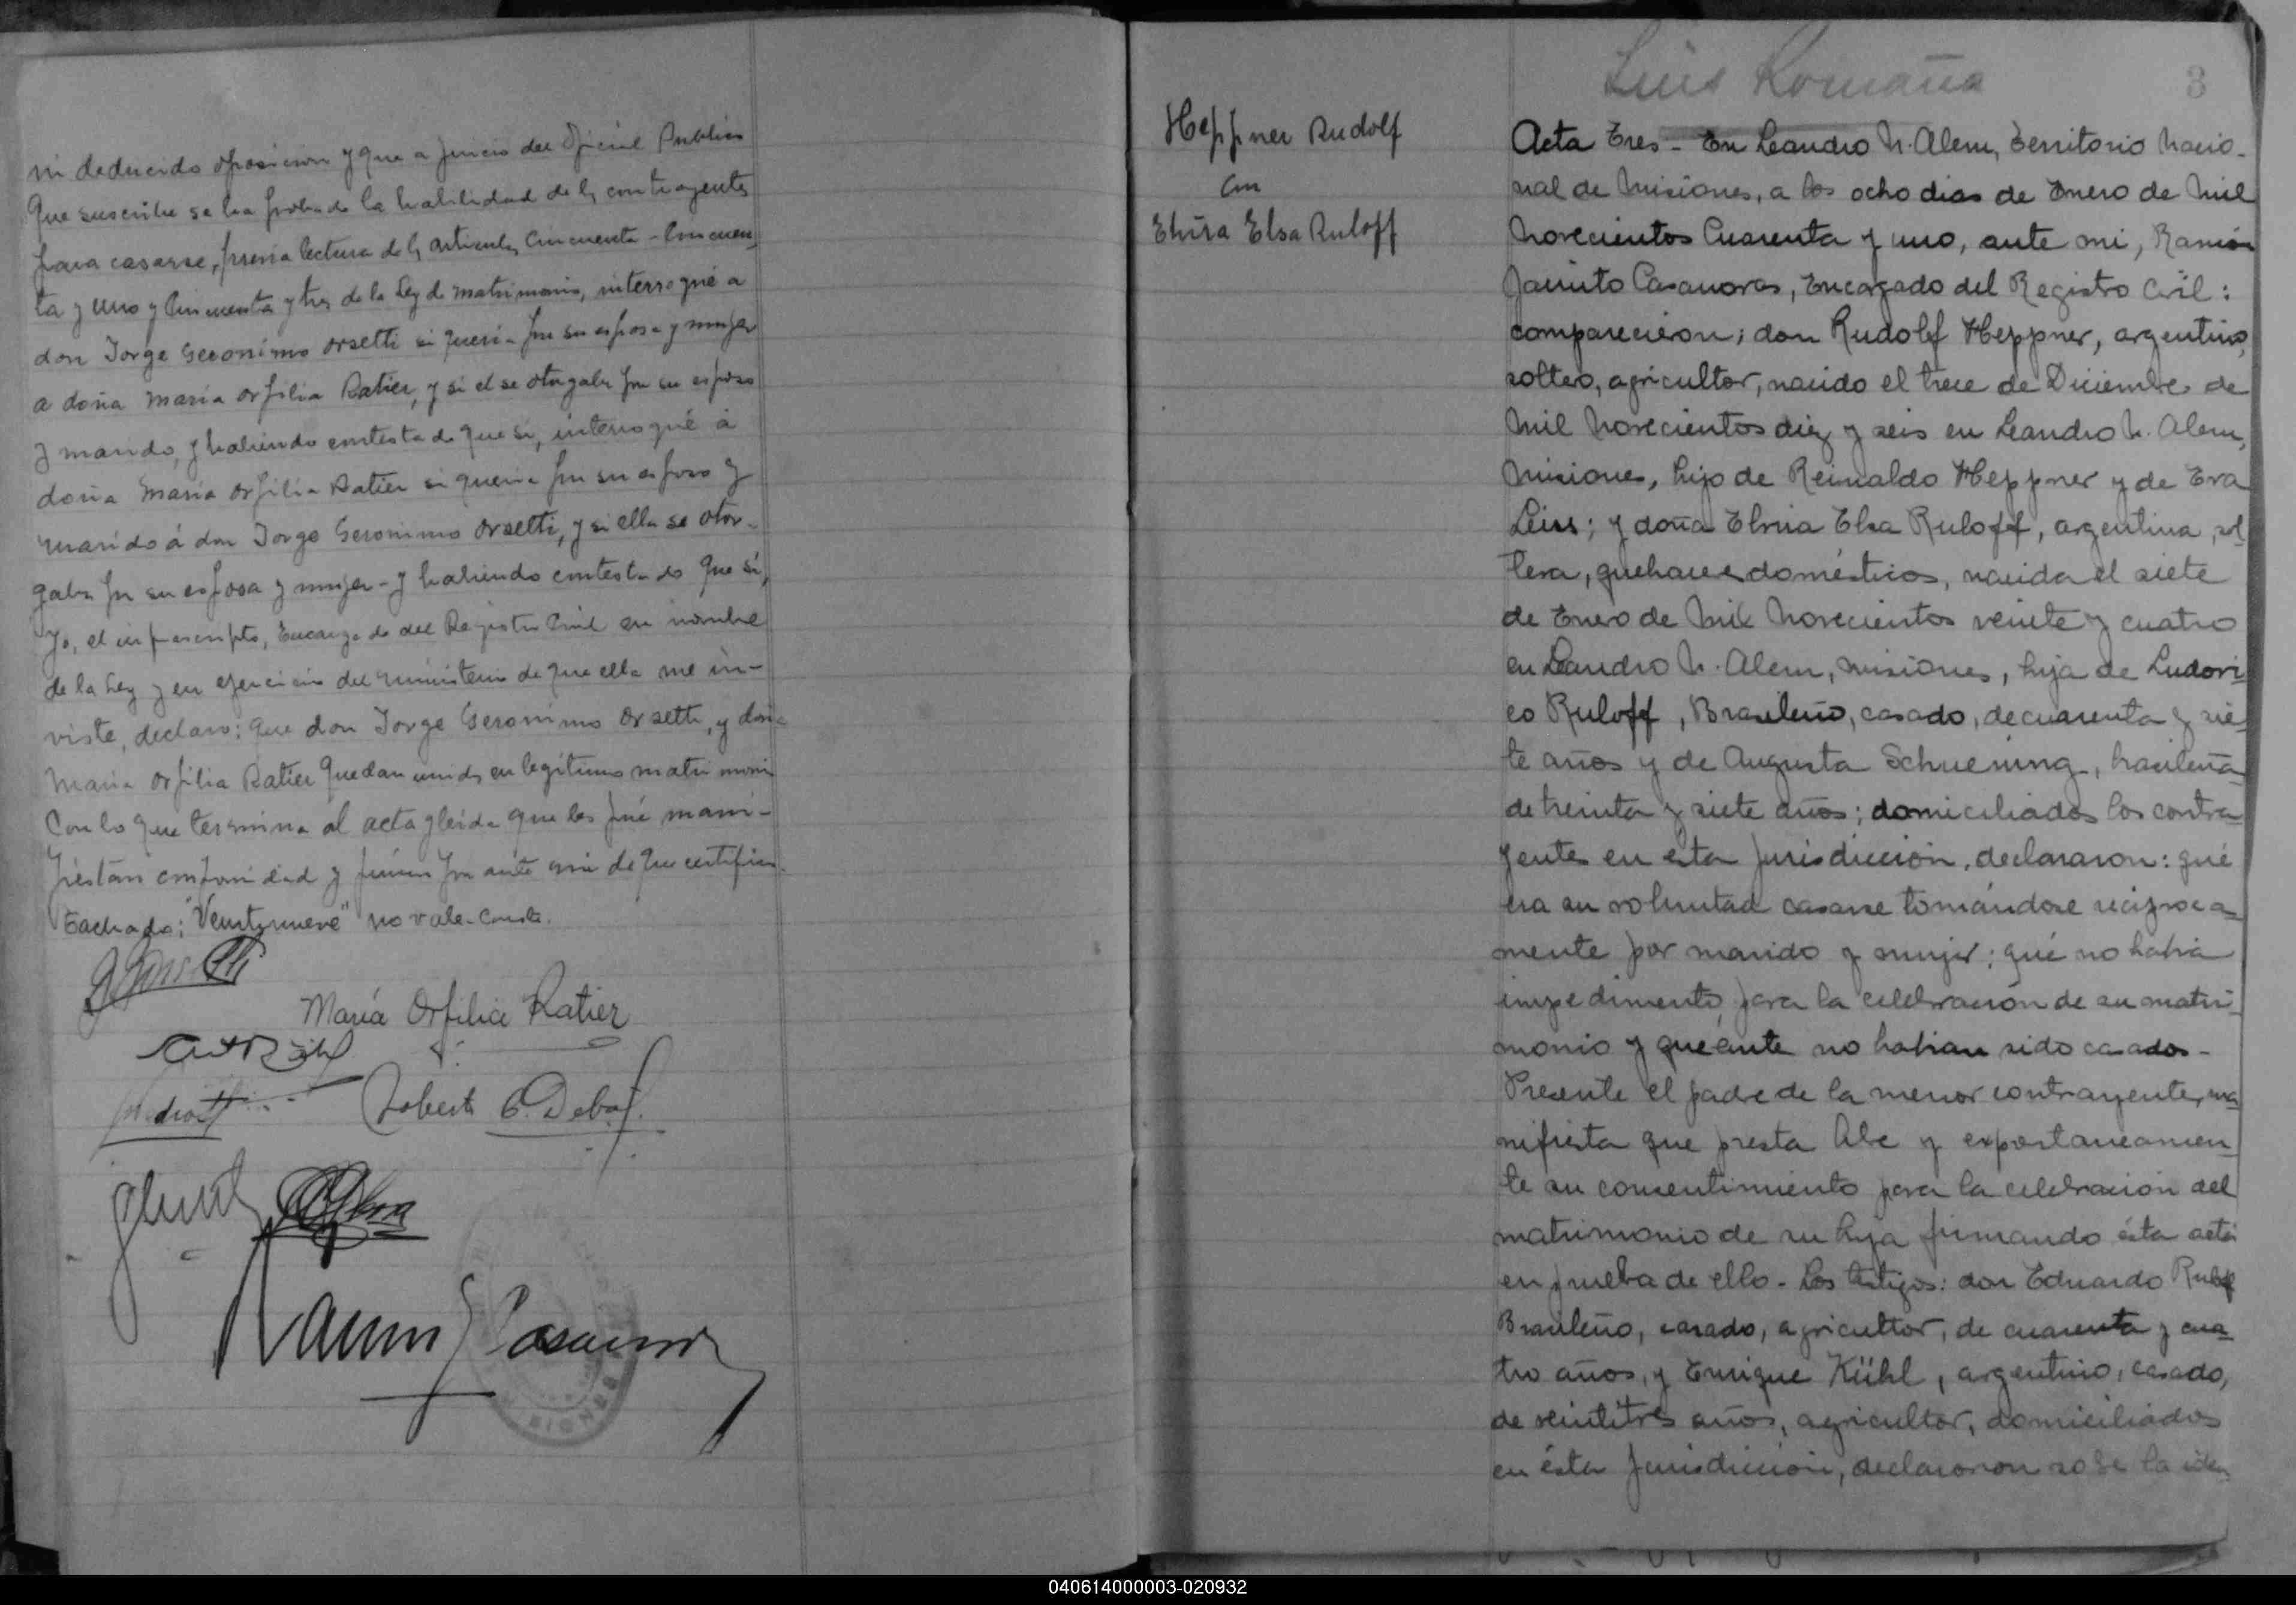 ni deducido oposicion y que a juicio del Oficial Publico
que suscribe se ha probado la habilidad de ls contrayentes
para casarse, previa lectura de ls articulos Cincuenta - Cincuen-
ta y uno y Cincuenta y tres de la Ley de matrimonio, interrogué a
don Jorge Geronimo Orsetti si queria por su esposa y mujer
a doña Maria Orfilia Ratier, y si el se otorgaba por su esposo
y marido, y habiendo contestado que si, interrogué á
doña Maria Orfilia Ratier si queria por su esposo y
marido á don Jorge Geronimo Orsetti, y si ella se otor-
gaba por su esposa y mujer - y habiendo contestado que si,
Yo, el infrascripto, Encargado del Registro Civil en nombre
de la Ley y en ejercicio del ministerio de que ella me in-
viste, declaro: que don Jorge Geronimo Orsetti, y doña
Maria Orfilia Ratier quedan unids en legitimo matrimonio
Con lo que termina el acta y leida que les fué mani-
fiestan conformidad y firman por ante mi de que certifico.
Tachado: "Ventynueve" no vale. Conste.
María Orfilia Ratier
Robert
Ramon J Casanova
Luis Romaña
3
Heppner Rudolf
con
Elvira Elsa Ruloff
Acta Tres - En Leandro N. Alem, Territorio Nacio-
nal de Misiones, a los ocho dias de Enero de Mil
Novecientos Cuarenta y uno, ante mi, Ramón
Jacinto Casanovas, Encargado del Registro Civil:
comparecieron; don Rudolf Heppner, argentino,
soltero, agricultor, nacido el trece de Diciembre de
Mil Novecientos diez y seis en Leandro N. Alem,
Misiones, hijo de Reinaldo Heppner y de Eva
Leiss; y doña Elvira Elsa Ruloff, argentina, sol-
tera, quehaceres domésticos, nacida el siete
de Enero de Mil Novecientos veinte y cuatro
en Leandro N. Alem, Misiones, hija de Ludovi-
co Ruloff, Brasileño, casado, de cuarenta y sie-
te años y de Augusta Schuening, brasileña
de treinta y siete años; domiciliados los contra-
yentes en esta Jurisdicción, declararon: qué
era su voluntad casarse tomándose reciproca-
mente por marido y mujer; qué no habia
impedimento, para la celebración de su matri-
monio y qué ante no habian sido casados -
Presente el padre de la menor contrayente, ma-
nifiesta que presta libe y expontaneamen-
te su consentimiento para la celebracion del
matrimonio de su hija firmando ésta acta
en prueba de ello - Los testigos: don Eduardo Ruloff
Brasileño, casado, agricultor, de cuarenta y cua-
tro años, y Enrique Kühl, argentino, casado,
de veintitrés años, agricultor, domiciliados
en ésta Jurisdicción, declararon sobe la iden-
040614000003-020932